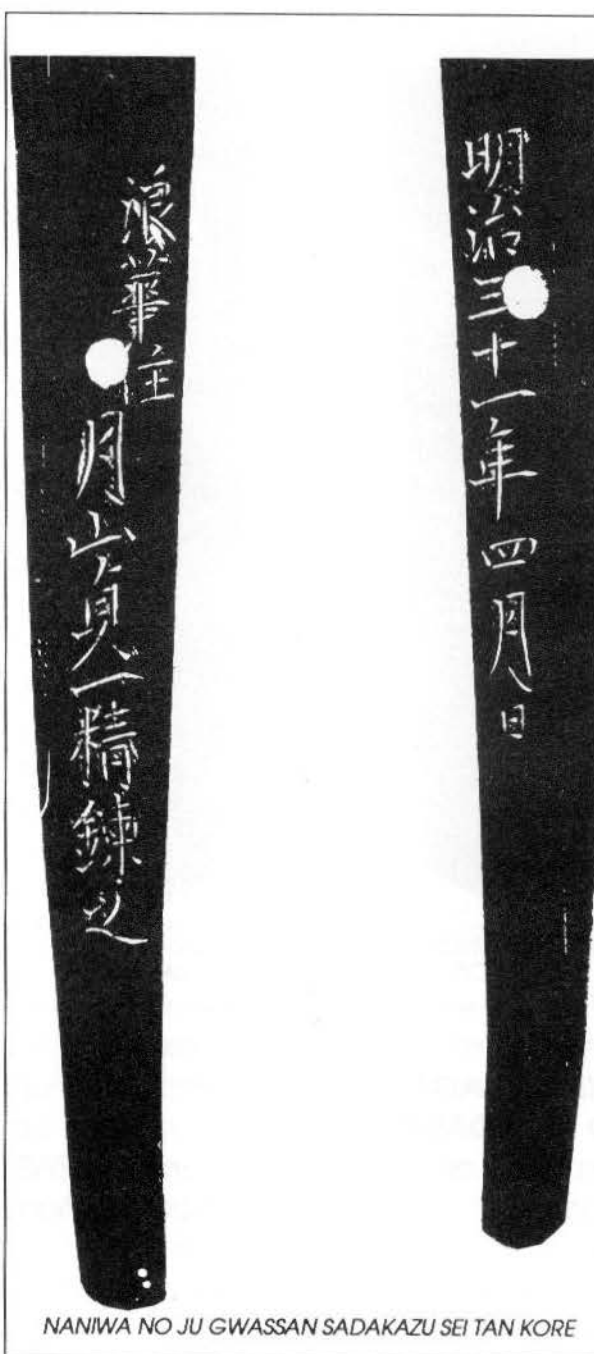 浪華住
月山貞一精鍊之
明治三十一年四月日
NANIWA NO JU GWASSAN SADAKAZU SEI TAN KORE